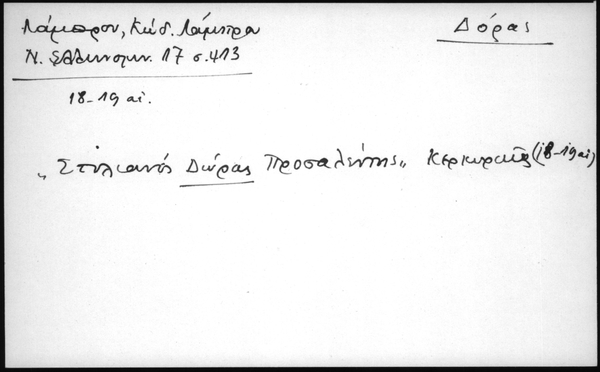 Λάμπρου, Κώδ. Λάμπρου
Ν. Ελληνομν. 17 σ. 413
Δόρας
18-19 αἰ.
„Στυλιανός Δώρας Προσαλέντης„ Κερκυραῖος (18-19 αἰ)